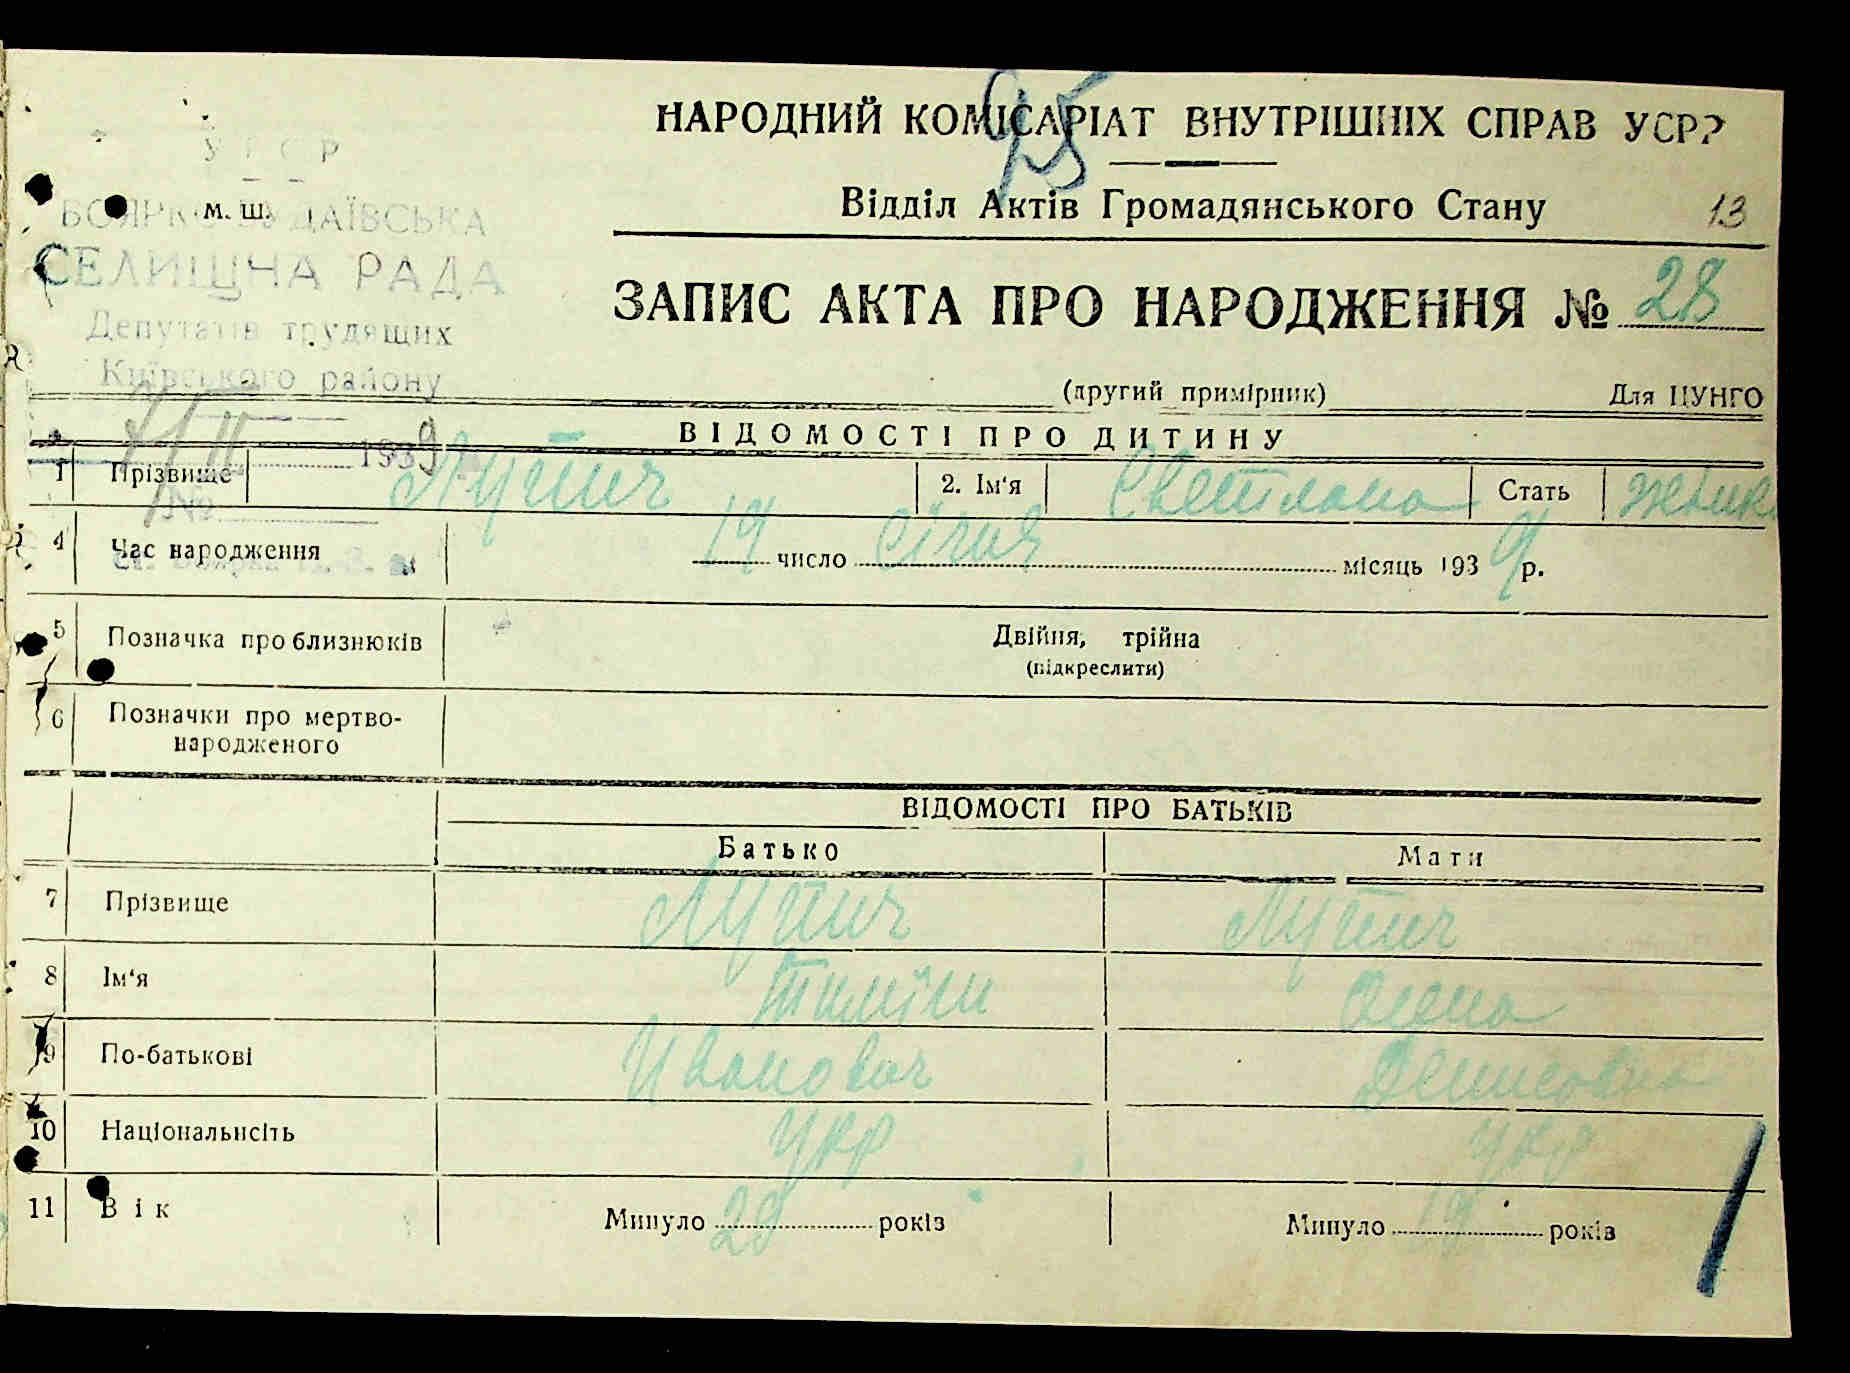 25
НАРОДНИЙ КОМІСАРІАТ ВНУТРІШНІХ СПРАВ УСРР
Відділ Актів Громадянського Стану
13
УРСР
м. ш.
БОЯРКО-БУДАЇВСЬКА
СЕЛИЩНА РАДА
Депутатів трудящих
Київського району
1939
№
ЗАПИС АКТА ПРО НАРОДЖЕННЯ № 28
(другий примірник) Для ЦУНГО
ВІДОМОСТІ ПРО ДИТИНУ
1 Прізвище Лупич 2. Ім'я Светлана Стать жінк
4 Час народження 19 число січня місяць 1939 р.
5 Позначка про близнюків Двійня, трійна
(підкреслити)
6 Позначки про мертво-
народженого
ВІДОМОСТІ ПРО БАТЬКІВ
Батько Мати
7 Прізвище Лупич Лупич
8 Ім'я Олена
9 По-батькові Иванович Денисовна
10 Національнсіть укр укр
11 Вік Минуло 29 років Минуло 19 років